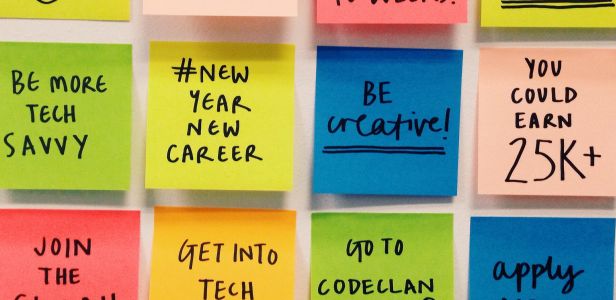 10 WEEKS!
BE MORE
TECH
SAVVY
#NEW
YEAR
NEW
CAREER
BE
creative!
YOU
COULD
EARN
25K+
JOIN
THE
GET INTO
TECH
GO TO
CODECLAN
apply